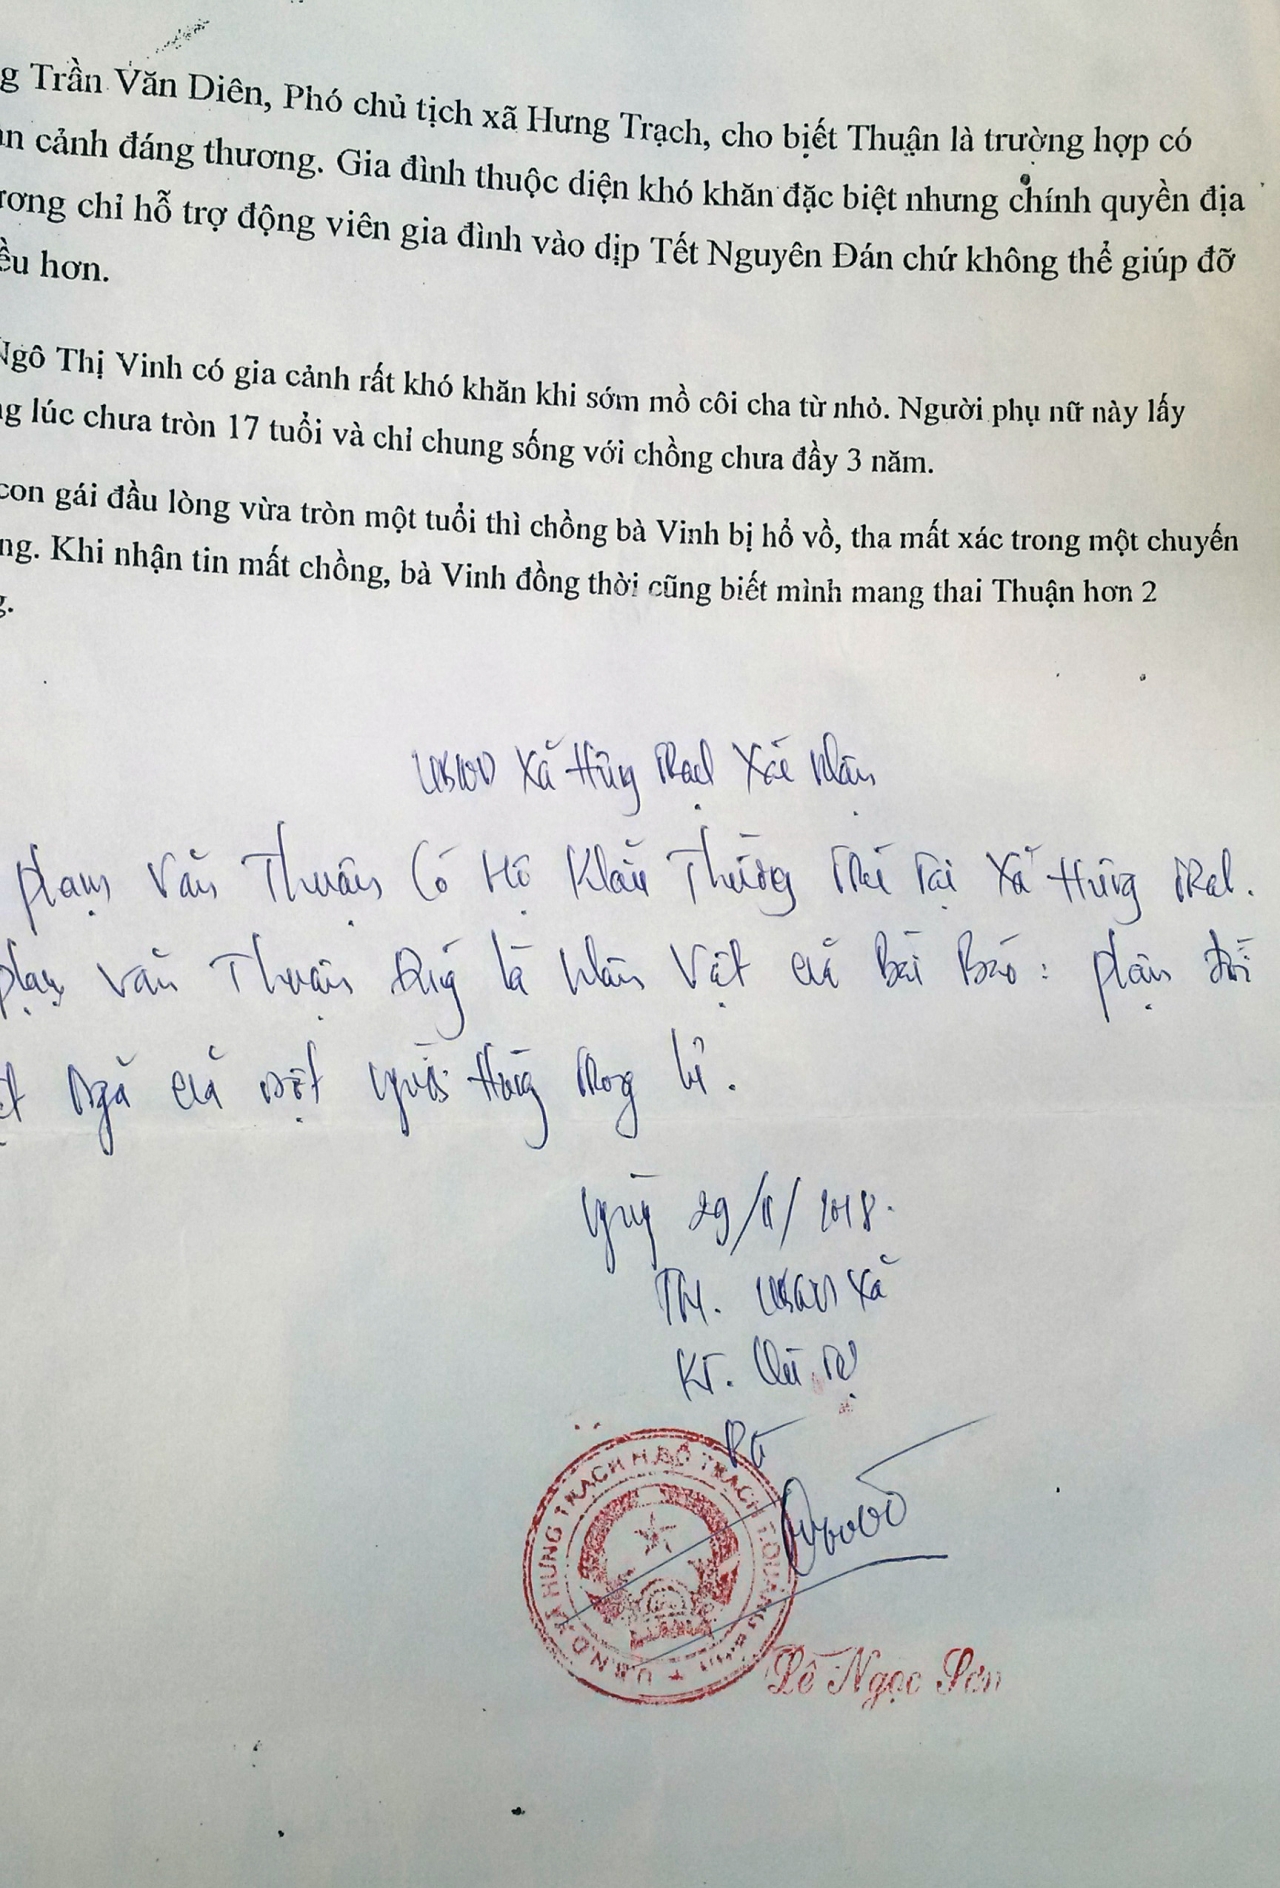 g Trần Văn Diên, Phó chủ tịch xã Hưng Trạch, cho biết Thuận là trường hợp có
n cảnh đáng thương. Gia đình thuộc diện khó khăn đặc biệt nhưng chính quyền địa
ương chỉ hỗ trợ động viên gia đình vào dịp Tết Nguyên Đán chứ không thể giúp đỡ
ều hơn.
Ngô Thị Vinh có gia cảnh rất khó khăn khi sớm mồ côi cha từ nhỏ. Người phụ nữ này lấy
ng lúc chưa tròn 17 tuổi và chỉ chung sống với chồng chưa đầy 3 năm.
con gái đầu lòng vừa tròn một tuổi thì chồng bà Vinh bị hổ vồ, tha mất xác trong một chuyến
ng. Khi nhận tin mất chồng, bà Vinh đồng thời cũng biết mình mang thai Thuận hơn 2
g.
UBND Xã Hưng Trạch Xác nhận
Phạm Văn Thuận Có Hộ Khẩu Thường Trú Tại Xã Hưng Trạch.
Phạm Văn Thuận Đúng là nhân Vật của Bài Báo: phận đời
ngã của một người Hùng trong lũ.
Ngày 29/11/2018.
TM. UBND Xã
KT. Chủ tịch
U.B.N.D XÃ HƯNG TRẠCH H.BỐ TRẠCH T.QUẢNG BÌNH
Lê Ngọc Sơn